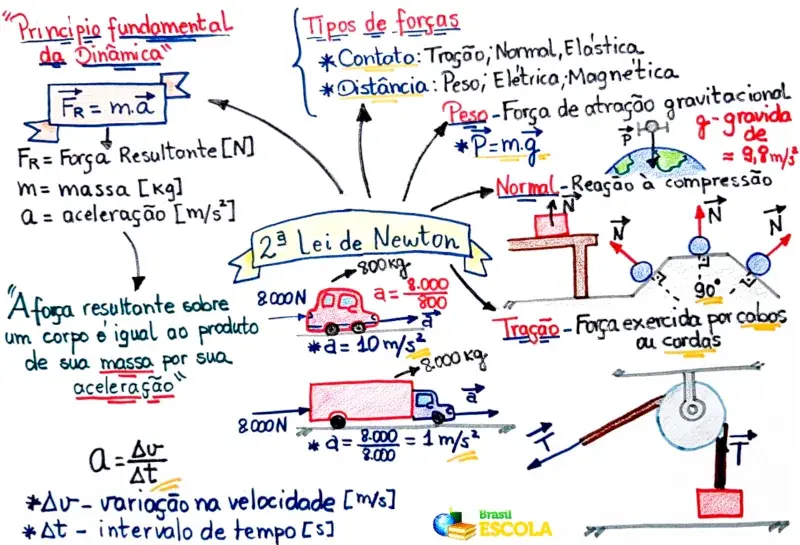 "Princípio fundamental
da Dinâmica"
F⃗R = m.a⃗
FR = Força Resultante [N]
m = massa [kg]
a = aceleração [m/s²]
"A força resultante sobre
um corpo é igual ao produto
de sua massa por sua
aceleração"
a = Δv/Δt
*Δv - variação na velocidade [m/s]
*Δt - intervalo de tempo [s]
Tipos de forças
*Contato: Tração, Normal, Elástica
*Distância: Peso, Elétrica, Magnética
Peso - Força de atração gravitacional
*P⃗ = m.g⃗
P⃗
g - gravida
de
≈ 9,8 m/s²
Normal - Reação à compressão
N⃗
N⃗
N⃗
N⃗
90°
2ª Lei de Newton
800kg
8.000N
a = 8.000/800
a⃗
*a = 10 m/s²
8.000 kg
8.000N
a⃗
*a = 8.000/8.000 = 1 m/s²
Tração - Força exercida por cabos
ou cordas
T⃗
T⃗
Brasil
ESCOLA